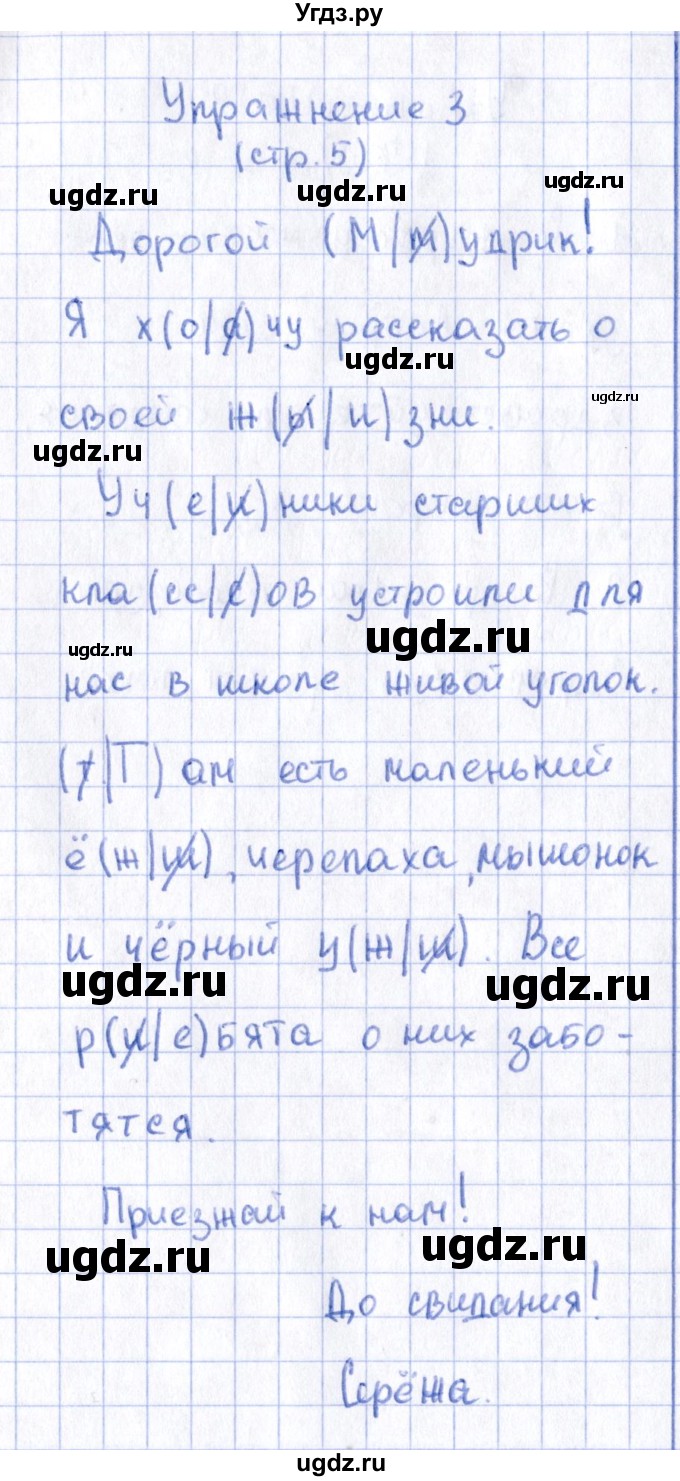 Угдз.ру
Упражнение 3
(стр. 5)
ugdz.ru ugdz.ru ugdz.ru
Дорогой (М/м)удрик!
Я х(о/а)чу рассказать о
ugdz.ru
своей ж(ы/и)зни.
ugdz.ru
ugdz.ru
Уч(е/и)ники старших
кла(сс/с)ов устроили для
ugdz.ru ugdz.ru
нас в школе живой уголок.
(т/Т)ам есть маленький
ё(ж/ш), черепаха, мышонок
и чёрный у(ж/ш). Все
ugdz.ru ugdz.ru
р(и/е)бята о них забо-
тятся.
Приезжай к нам!
ugdz.ru ugdz.ru
До свидания!
Серёжа.
ugdz.ru